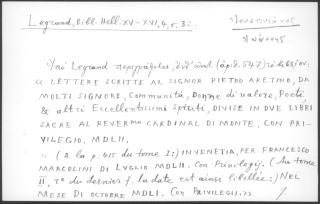 Legrand, Bibl. Hell. XV-XVI, 4, σ. 32.
Ὑπὸ Legrand περιγράφεται,
« LETTERE SCRITTE AL SIGNOR PIETRO ARETINO, DA
MOLTI SIGNORI, Communità, Donne di valore, Poeti,
& altri Eccellentissimi spiriti, DIVISE IN DUE LIBRI
SACRE AL REVERmo CARDINAL DI MONTE, CON PRI-
VILEGIO, MDLII.
(A la p. 415 du tome I:) IN VENETIA, PER FRANCESCO
MARCOLINI DI LUGLIO MDLII. Con Privilegij. (Au tome
II, ro du dernier f. la date est ainsi libellée:) NEL
MESE DI OTTOBRE MDLI. Con PRIVILEGII.»